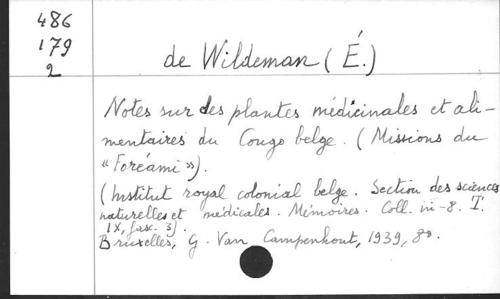 486
179
2
de Wildeman (É.)
Notes sur des plantes médicinales et ali-
mentaires du Congo belge. (Missions du
"Foréami").
(Institut royal colonial belge. Section des sciences
naturelles et médicales. Mémoires. Coll. in-8. T.
IX, fasc. 3).
Bruxelles, G. Van Campenhout, 1939, 8º.